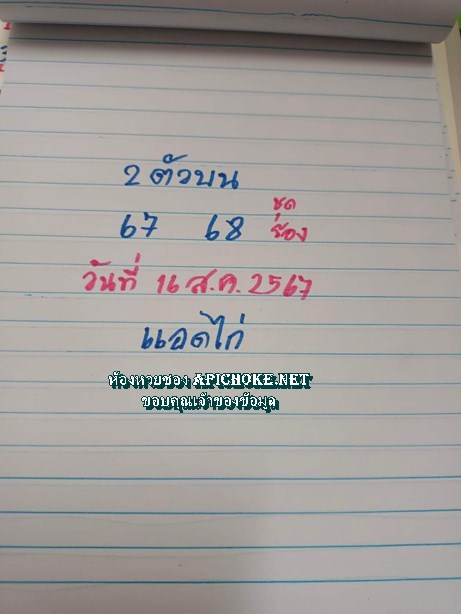 2 ตัวบน
67 68 ชุด
ร้อง
วันที่ 16 ส.ค. 2567
แอดไก่
ห้องหวยซอง APICHOKE.NET
ขอบคุณเจ้าของข้อมูล